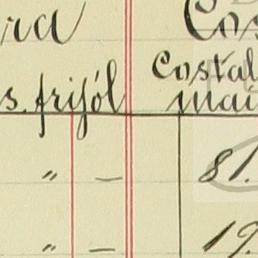 ra Cos
s. frijól Costal
mai
" — 81.
" — 19.